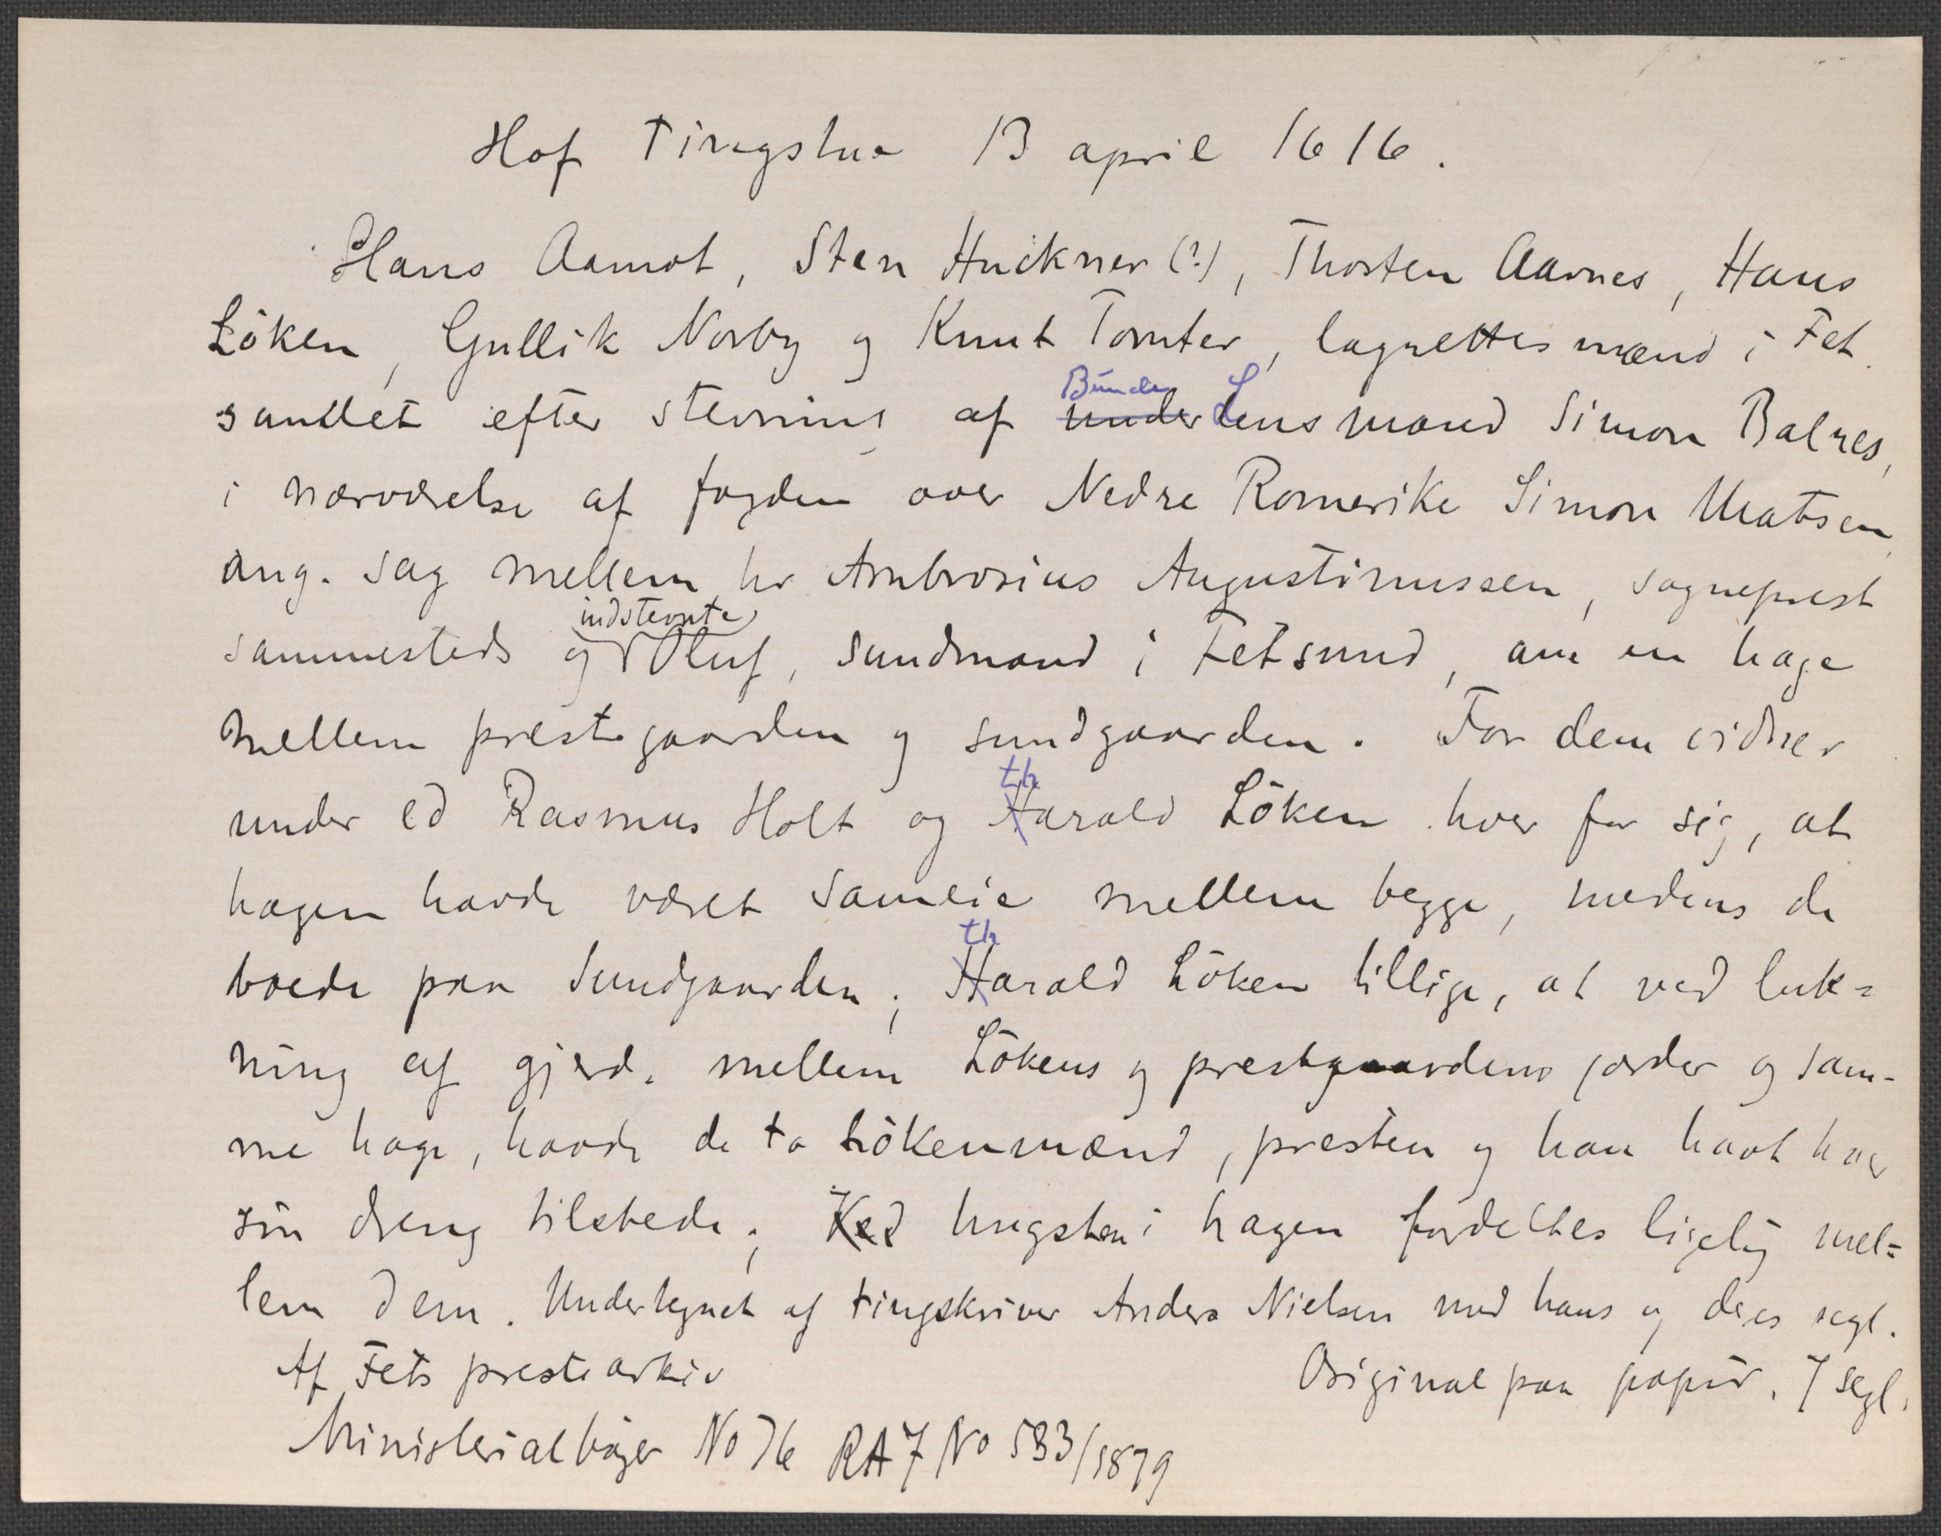 Hof Tingstue 13 april 1616.
Hans Aamot, Sten Huckner (?), Thorsten Aarnes, Hans
Löken, Gullik Norby og Knut Tomter, lagrettesmænd i Fet
samlet efter stevning af Bunde Lensmand Simon Balnes,
i nærværelse af fogden over Nedre Romerike Simon Matsen,
ang. sag mellem hr Ambrosius Augustinussen, sogneprest
sammesteds og indstevnte Oluf, sundmand i Fetsund, om en hage
mellem prestegaarden og sundgaarden. For dem vidner
under ed Rasmus Holt og tharald Löken hver for sig, at
hagen havde været sameie mellem begge, medens de
boede paa Sundgaarden; tharald Löken tillige, at ved luk=
ning af gjerde mellem Lökens og prestgaardens jorder og sam-
me hage, havde de to Lökenmænd, presten og han havt hver
sin dreng tilstede; hugsten i hagen fordeltes ligelig mel=
lem dem. Undertegnet af tingskriver Anders Nielsen med hans og deres segl.
Af Fets prestearkiv Original paa papir. 7 segl.
Ministerialbøger No 76 RA 7 No 533/1879